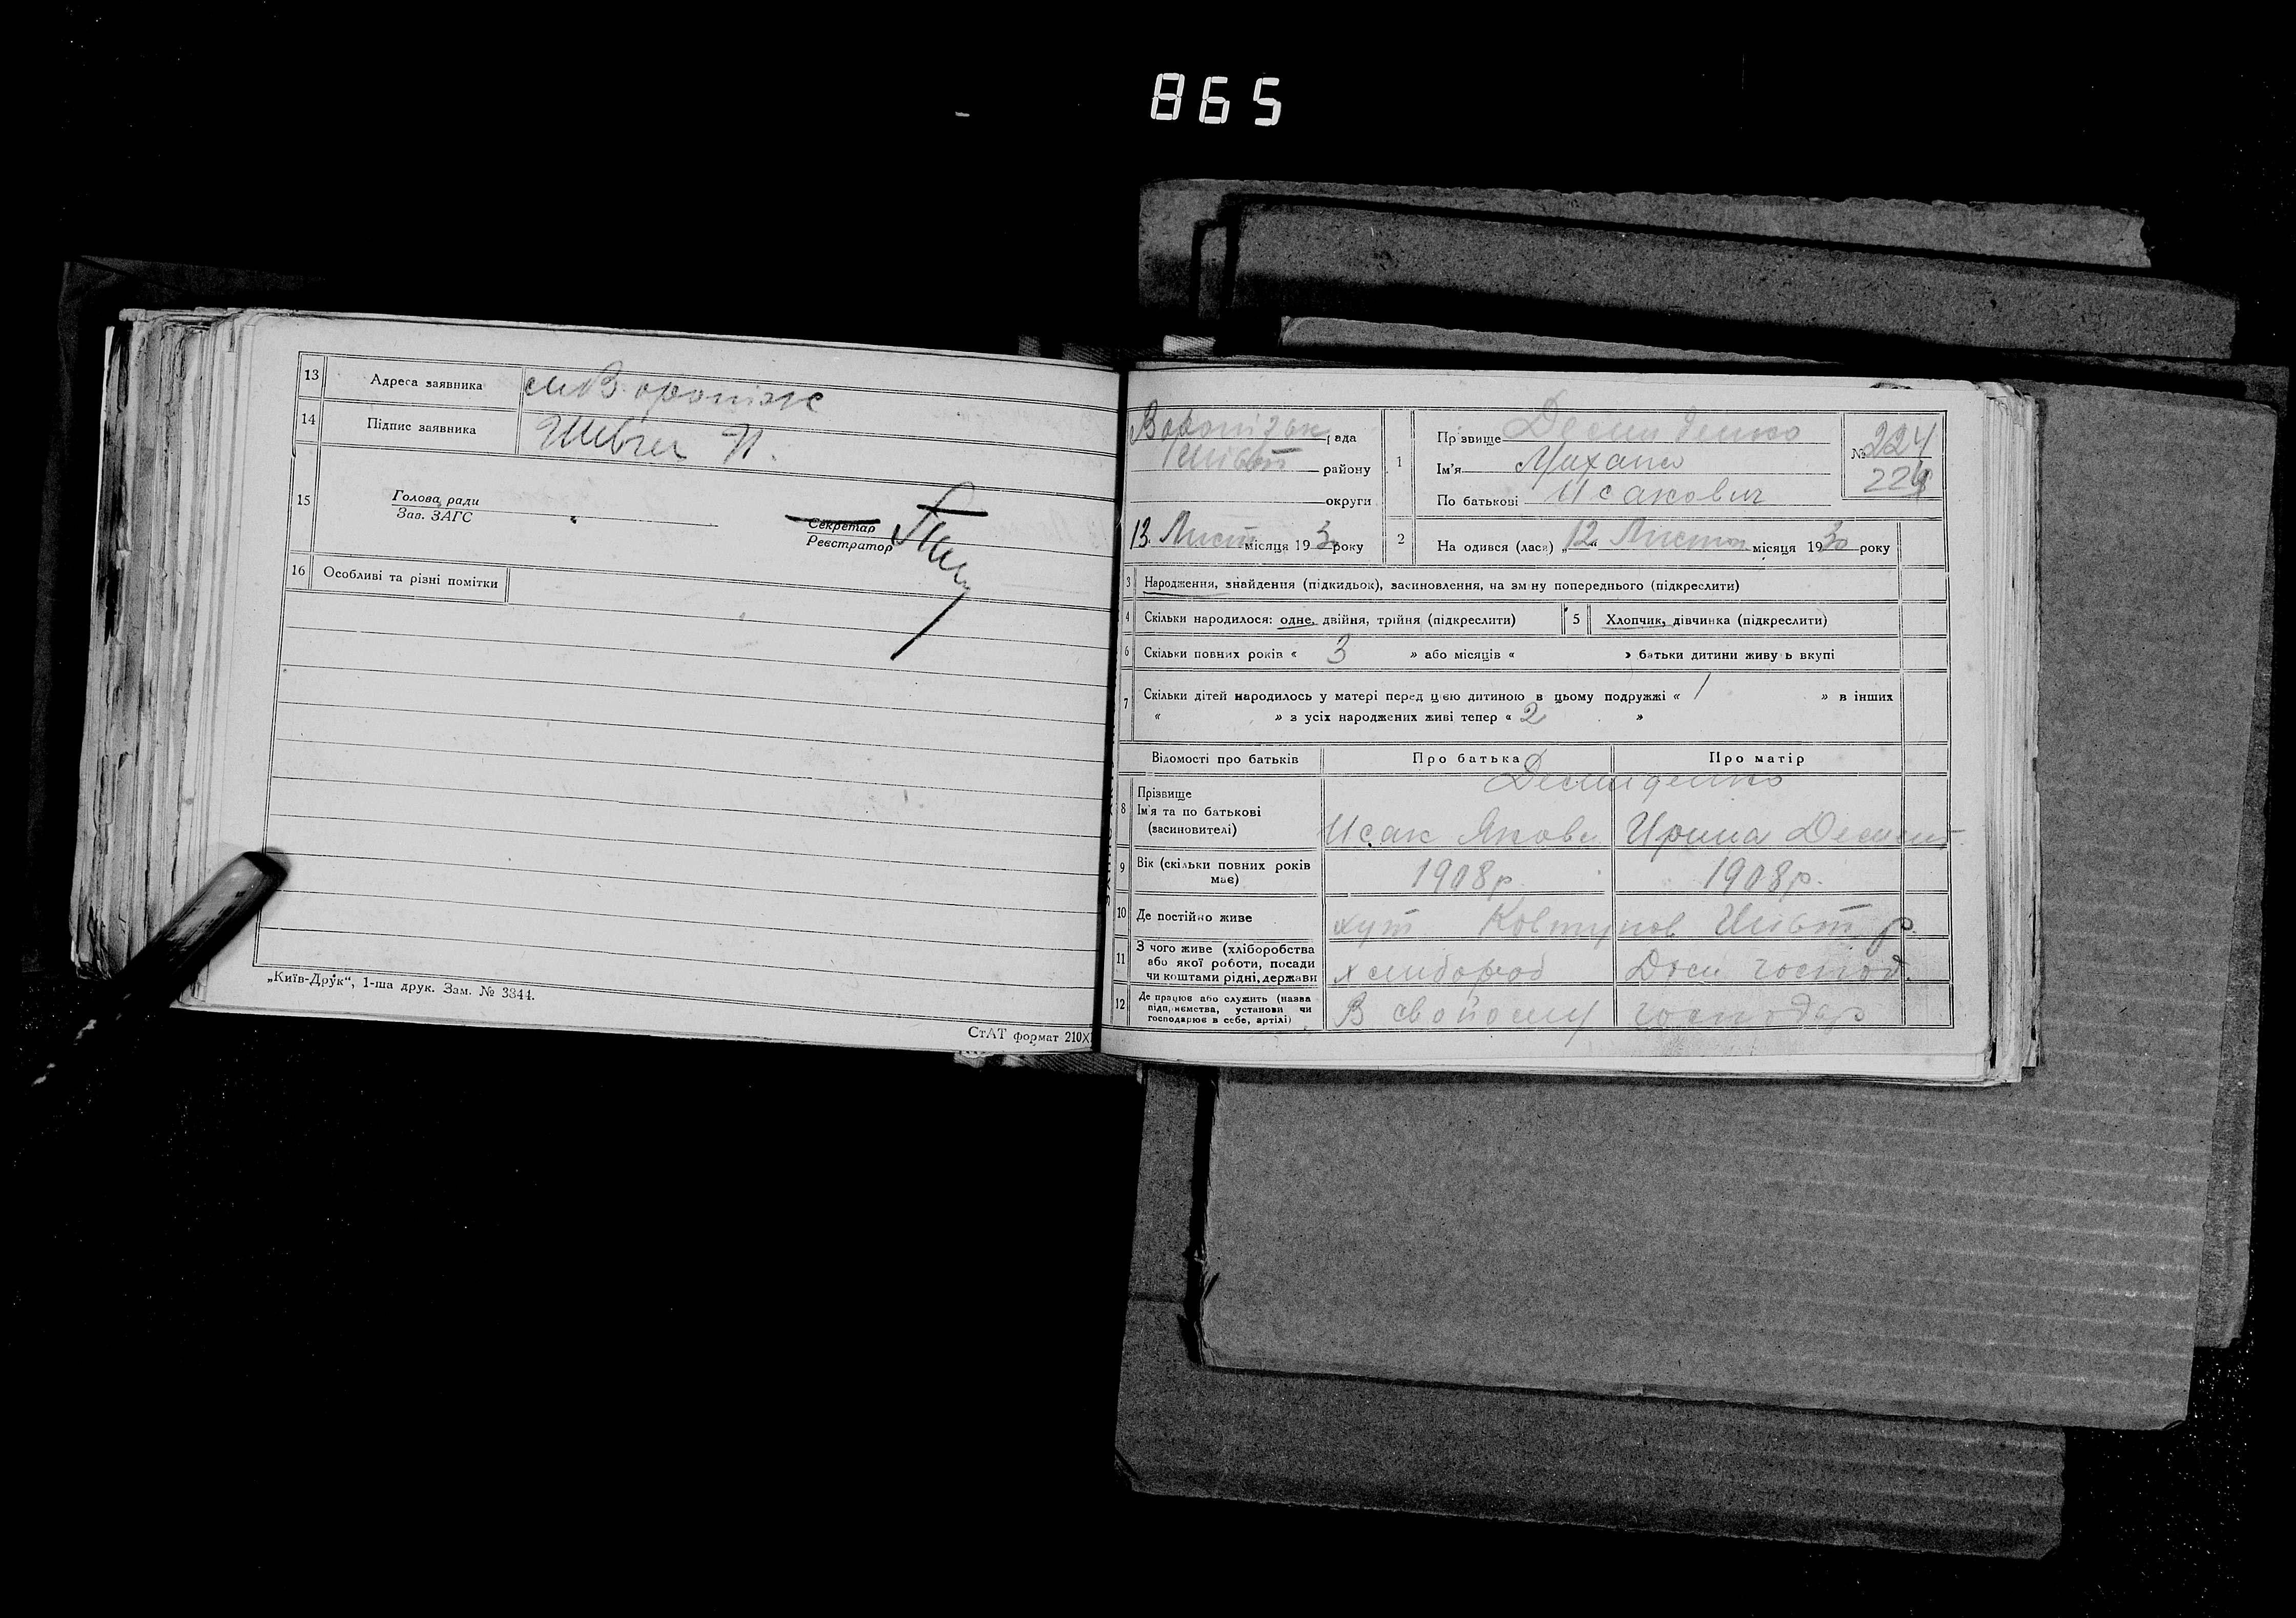 865
13 Адреса заявника м Вороніж
14 Підпис заявника Шевчен Н.
15 Голова ради
Зав. ЗАГС
Секретар
Реєстратор
16 Особливі та різні помітки
„Київ-Друк“, 1-ша друк. Зам. № 3344.
СтАТ формат 210X
Вороніжськ рада
району
округи
13 Лист місяця 1930 року
1 Прізвище Демиденко
Ім'я Михаил
По батькові Исакович
№ 224
224
2 На одився (лася) „12“ Листоп місяця 1930 року
3 Народження, знайдення (підкидьок), засиновлення, на зміну попереднього (підкреслити)
4 Скільки народилося: одне, двійня, трійня (підкреслити) 5 Хлопчик, дівчинка (підкреслити)
6 Скільки повних років « 3 » або місяців « » батьки дитини живу ь вкупі
7 Скільки дітей народилось у матері перед цією дитиною в цьому подружжі « 1 » в інших
« » з усіх народжених живі тепер « 2 »
Відомості про батьків Про батька Про матір
Демиденко
8 Прізвище
Ім'я та по батькові
(засиновителі)
Исак Якове Ирина Демент
9 Вік (скільки повних років
має)
1908р. 1908р.
10 Де постійно живе хут Ковтунов р.
11 З чого живе (хліборобства
або якої роботи, посади
чи коштами рідні, держави
хлибороб Дом господ.
12 Де працює або служить (назва
підприємства, установи чи
господарює в себе, артілі)
В свойому господар